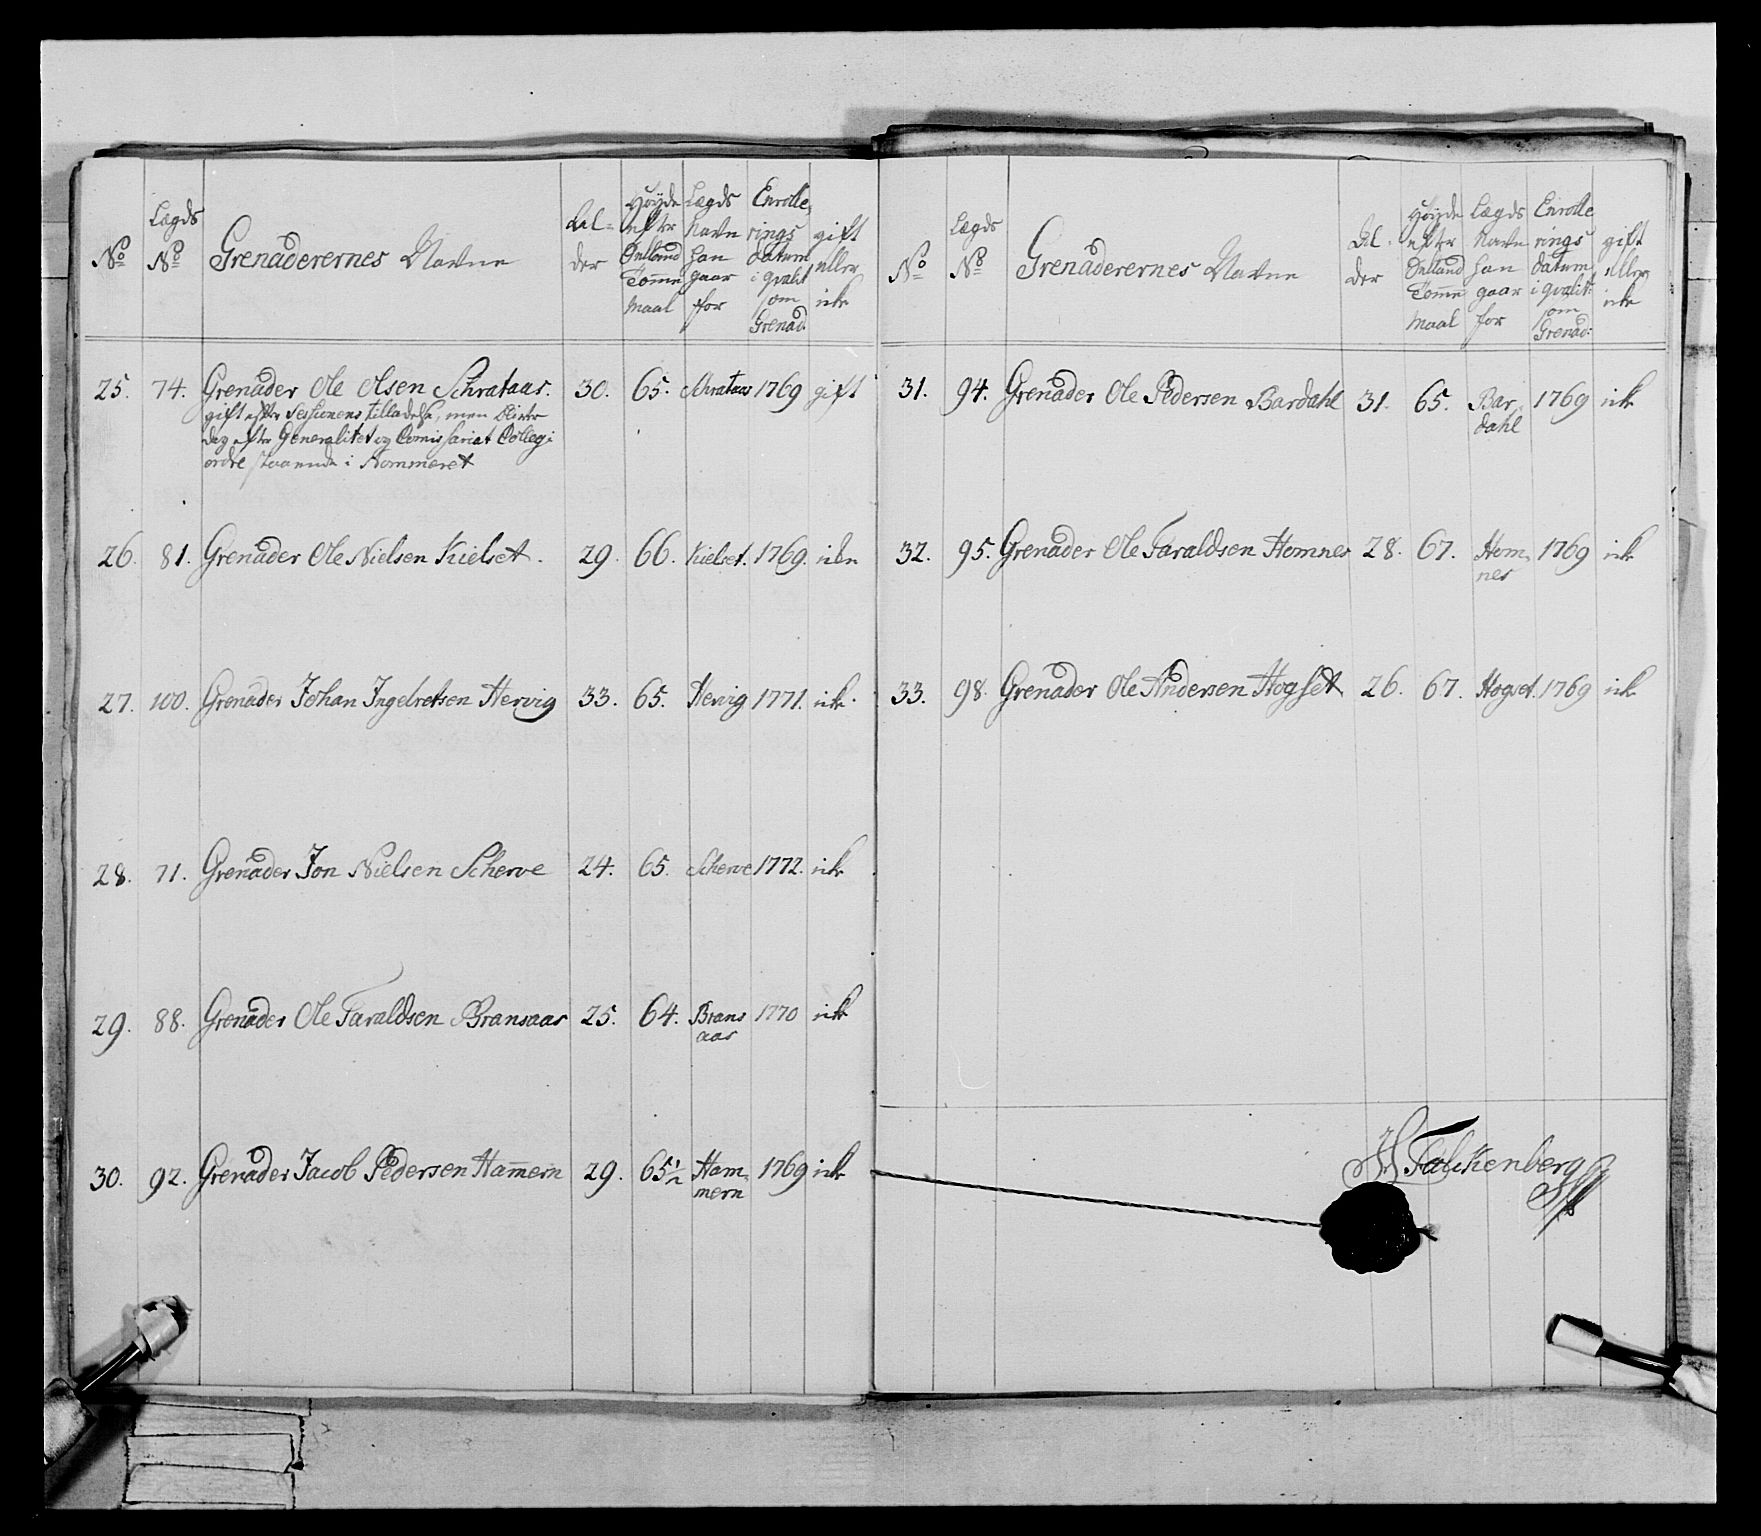 No
Lægds No
Grenaderernes Navne
Al-der
Høyde efter Sælland Tomme Maal
Lægds Navn han gaar for
Enrolle rings datum i qvalit om Grenad:
gift eller ick
25. 74. Grenader Ole Olsen Schrataas. 30. 65. Schrataas 1769 gift
gift efter Sessionens tilladelse, men bliver
dog efter Generalitet og Comissariat Collegi
ordre staaende i Nommeret
26. 81. Grenader Ole Nielsen Kielset. 29. 66. Kielset. 1769. icke
27. 100. Grenader Johan Ingelretsen Hervig 33. 65. Hervig 1771. ick
28. 71. Grenader Jon Nielsen Scherve 24. 65. Scherve 1772. ick
29. 88. Grenader Ole Taraldsen Bransaas 25. 64. Brans 1770 ick
aas
30. 92. Grenader Jacob Pedersen Hamern 29. 65½ Ham- 1769 ick
mern
No
Lægds No
Grenaderernes Navne
Al-der
Høyde efter Sælland Tomme Maal
Lægds Navn han gaar for
Enrolle rings datum i qvalit: om Grenad:
gift eller ick
31. 94. Grenader Ole Pedersen Bardahl 31. 65. Bar- 1769 ick
dahl
32. 95. Grenader Ole Taraldsen Homnes 28. 67. Hom- 1769 ick
nes
33. 98. Grenader Ole Andersen Hogset 26. 67. Hogset 1769 ick
Falckenberg